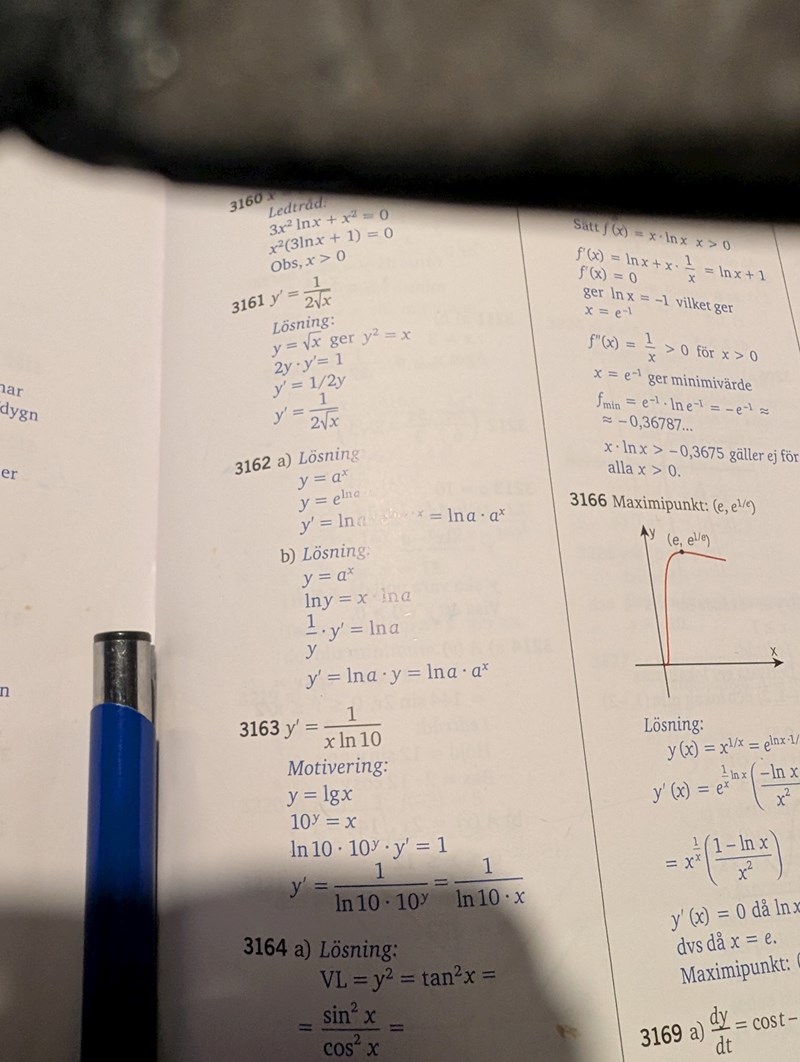 nar
dygn
er
n
3160 x
Ledtråd:
3x² lnx + x² = 0
x²(3lnx + 1) = 0
Obs, x > 0
3161 y' = 1/(2√x)
Lösning:
y = √x ger y² = x
2y · y' = 1
y' = 1/2y
y' = 1/(2√x)
3162 a) Lösning
y = aˣ
y = e^(lna
y' = lna = lna · aˣ
b) Lösning:
y = aˣ
lny = x · lna
1/y · y' = lna
y' = lna · y = lna · aˣ
3163 y' = 1/(x ln10)
Motivering:
y = lgx
10ʸ = x
ln10 · 10ʸ · y' = 1
y' = 1/(ln10 · 10ʸ) = 1/(ln10 · x)
3164 a) Lösning:
VL = y² = tan²x =
= sin² x/cos² x =
Sätt f(x) = x · lnx x > 0
f'(x) = lnx + x · 1/x = lnx + 1
f'(x) = 0
ger lnx = −1 vilket ger
x = e⁻¹
f"(x) = 1/x > 0 för x > 0
x = e⁻¹ ger minimivärde
f_min = e⁻¹ · ln e⁻¹ = −e⁻¹ ≈
≈ −0,36787...
x · lnx > −0,3675 gäller ej för
alla x > 0.
3166 Maximipunkt: (e, e^(1/e))
y (e, e^(1/e))
x
Lösning:
y(x) = x^(1/x) = e^(lnx·1/
y'(x) = e^(1/x lnx) (−ln x/x²
= x^(1/x) ((1 − ln x)/x²)
y'(x) = 0 då lnx
dvs då x = e.
Maximipunkt: (
3169 a) dy/dt = cost −